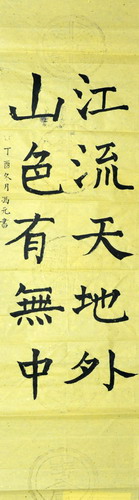 江流天地外
山色有無中
丁酉冬月馮元書